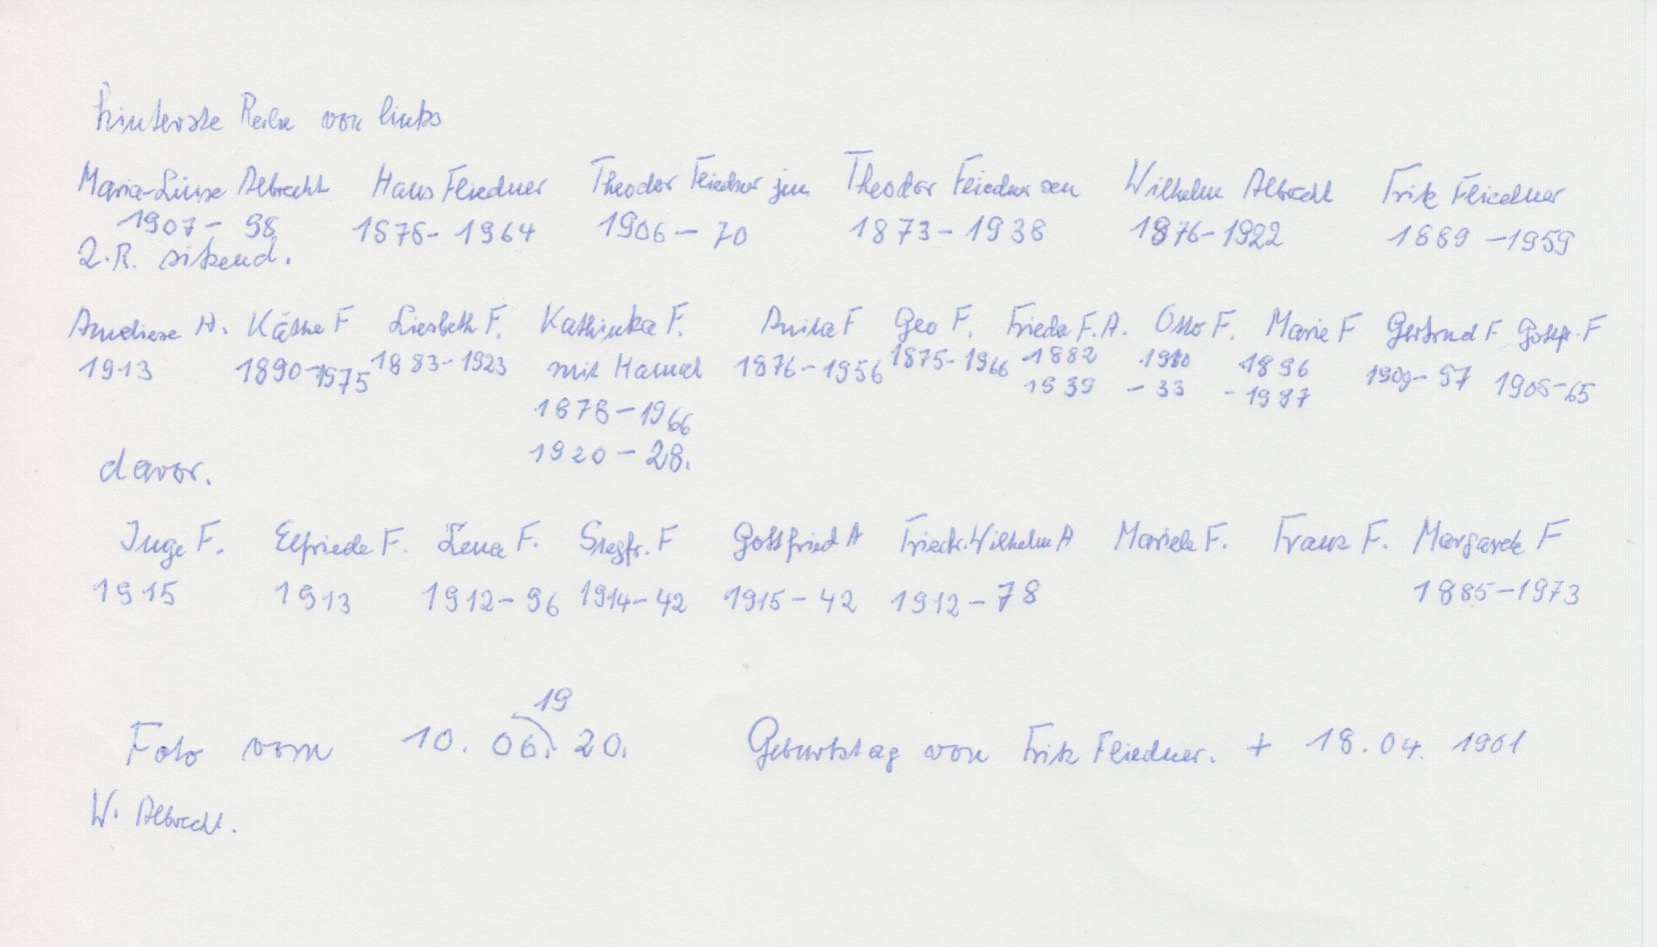 hinterste Reihe von links
Maria-Luise Albrecht Hans Fliedner Theodor Fliedner jun Theodor Fliedner sen Wilhelm Albrecht Fritz Fliedner
1907 - 98 1878 - 1964 1906 - 70 1873 - 1938 1876 - 1922 1889 - 1959
2. R. sitzend.
Anneliese A. Käthe F Liesbeth F. Kathinka F. Anita F Geo F. Frieda F. A. Otto F. Marie F Gertrud F Gottfr. F
1913 1890 - 1975 1883 - 1923 mit Hannah 1876 - 1956 1875 - 1966 1882 1910 1896 1909 - 97 1905 - 65
1878 - 1966 1939 - 33 - 1987
1920 - 28.
davor.
Inge F. Elfriede F. Lena F. Siegfr. F Gottfried A Friedr. Wilhelm A Mariele F. Franz F. Margarete F
1915 1913 1912 - 96 1914 - 42 1915 - 42 1912 - 78 1885 - 1973
19
Foto vom 10. 06. 20. Geburtstag von Fritz Fliedner. + 18. 04. 1901
W. Albrecht.